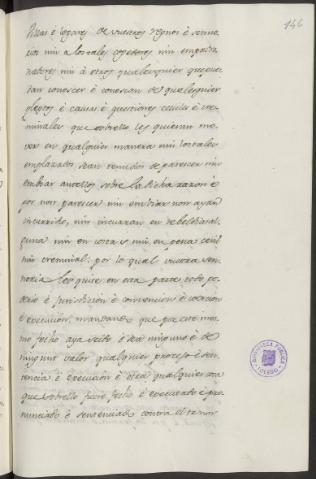 146
Villas é logares de vuestros regnos é senno-
rios nin a los tales cogedores nin empera-
nadores nin á otros qualesquier que pue-
dan conoscer é conoscan de qualesquier
pleytos é causas é questiones ceviles é cre-
minales que sobrello les quieran mo-
ver en qualquier manera nin los tales
emplazados sean tenudos de parescer nin
embiar antellos sobre la dicha razon é
por non parescer nin embiar non ayan
incurrido, nin incurran en rebeldia al-
guna nin en costas nin en pena cevil
nin creminal: por lo qual vuestra sen-
noria les quite en esta parte todo po-
derio é jurisdicion é
é execucion, mandando que
fecho aya seido é sea ninguno é de
ningunt valor qualquier proceso é sen-
tencia é execucion é otra qualquier cosa
que sobrello fuere fecho é executado é pro-
nunciado é sentenciado contra el tenor
BIBLIOTECA PUBLICA
TOLEDO